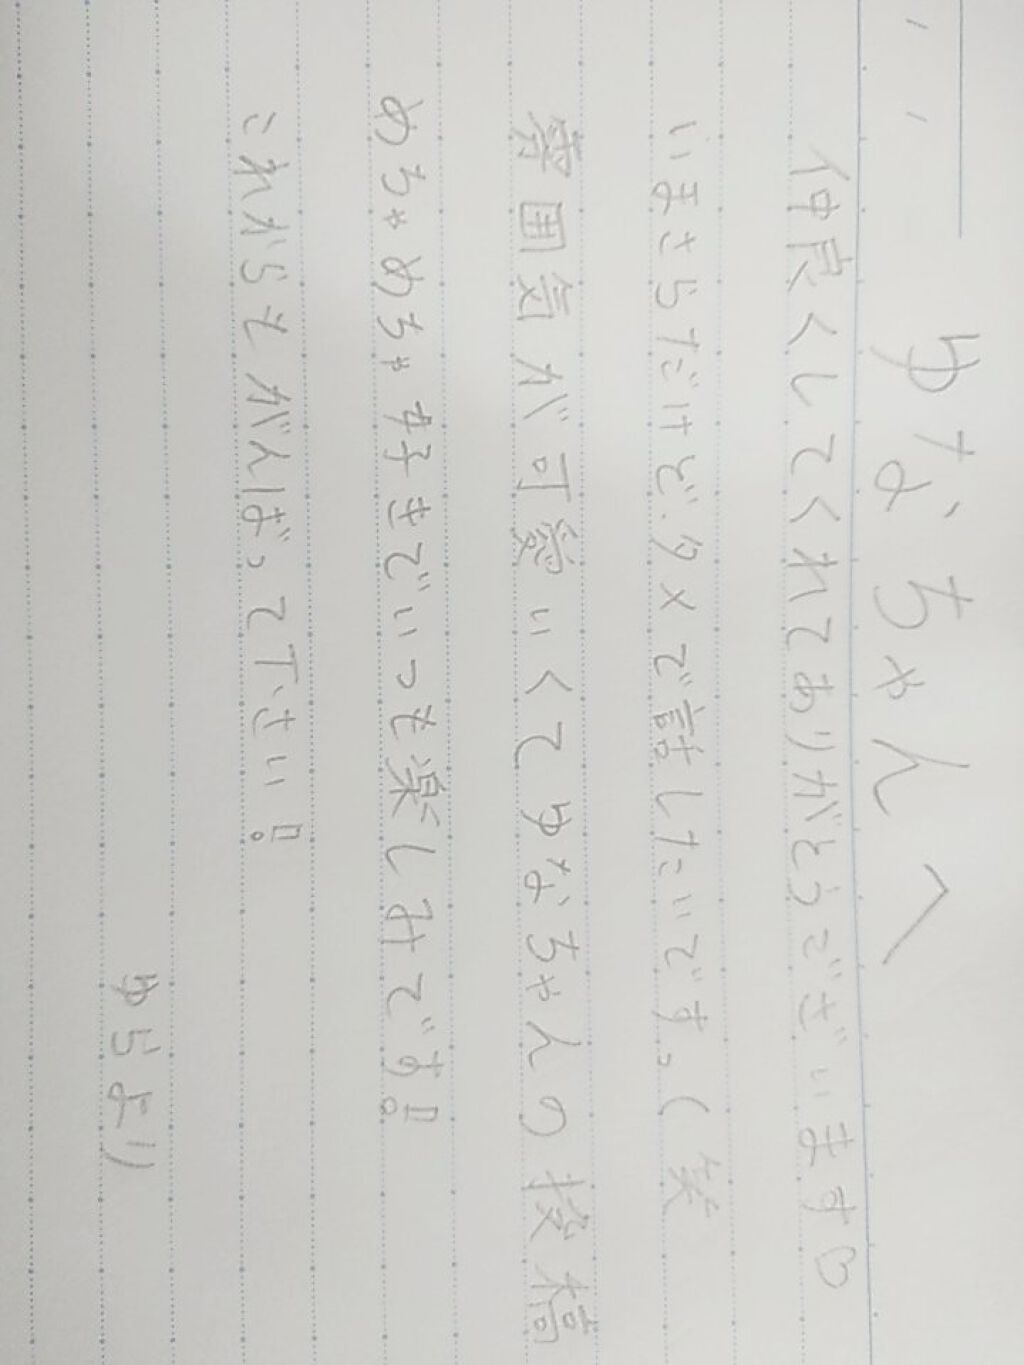 ゆなちゃんへ
仲良くしてくれてありがとうございます♡
いまさらだけど、タメで話したいです。(笑
雰囲気が可愛いくてゆなちゃんの投稿
めちゃめちゃ好きでいつも楽しみです!
これからもがんばって下さい!
ゆらより